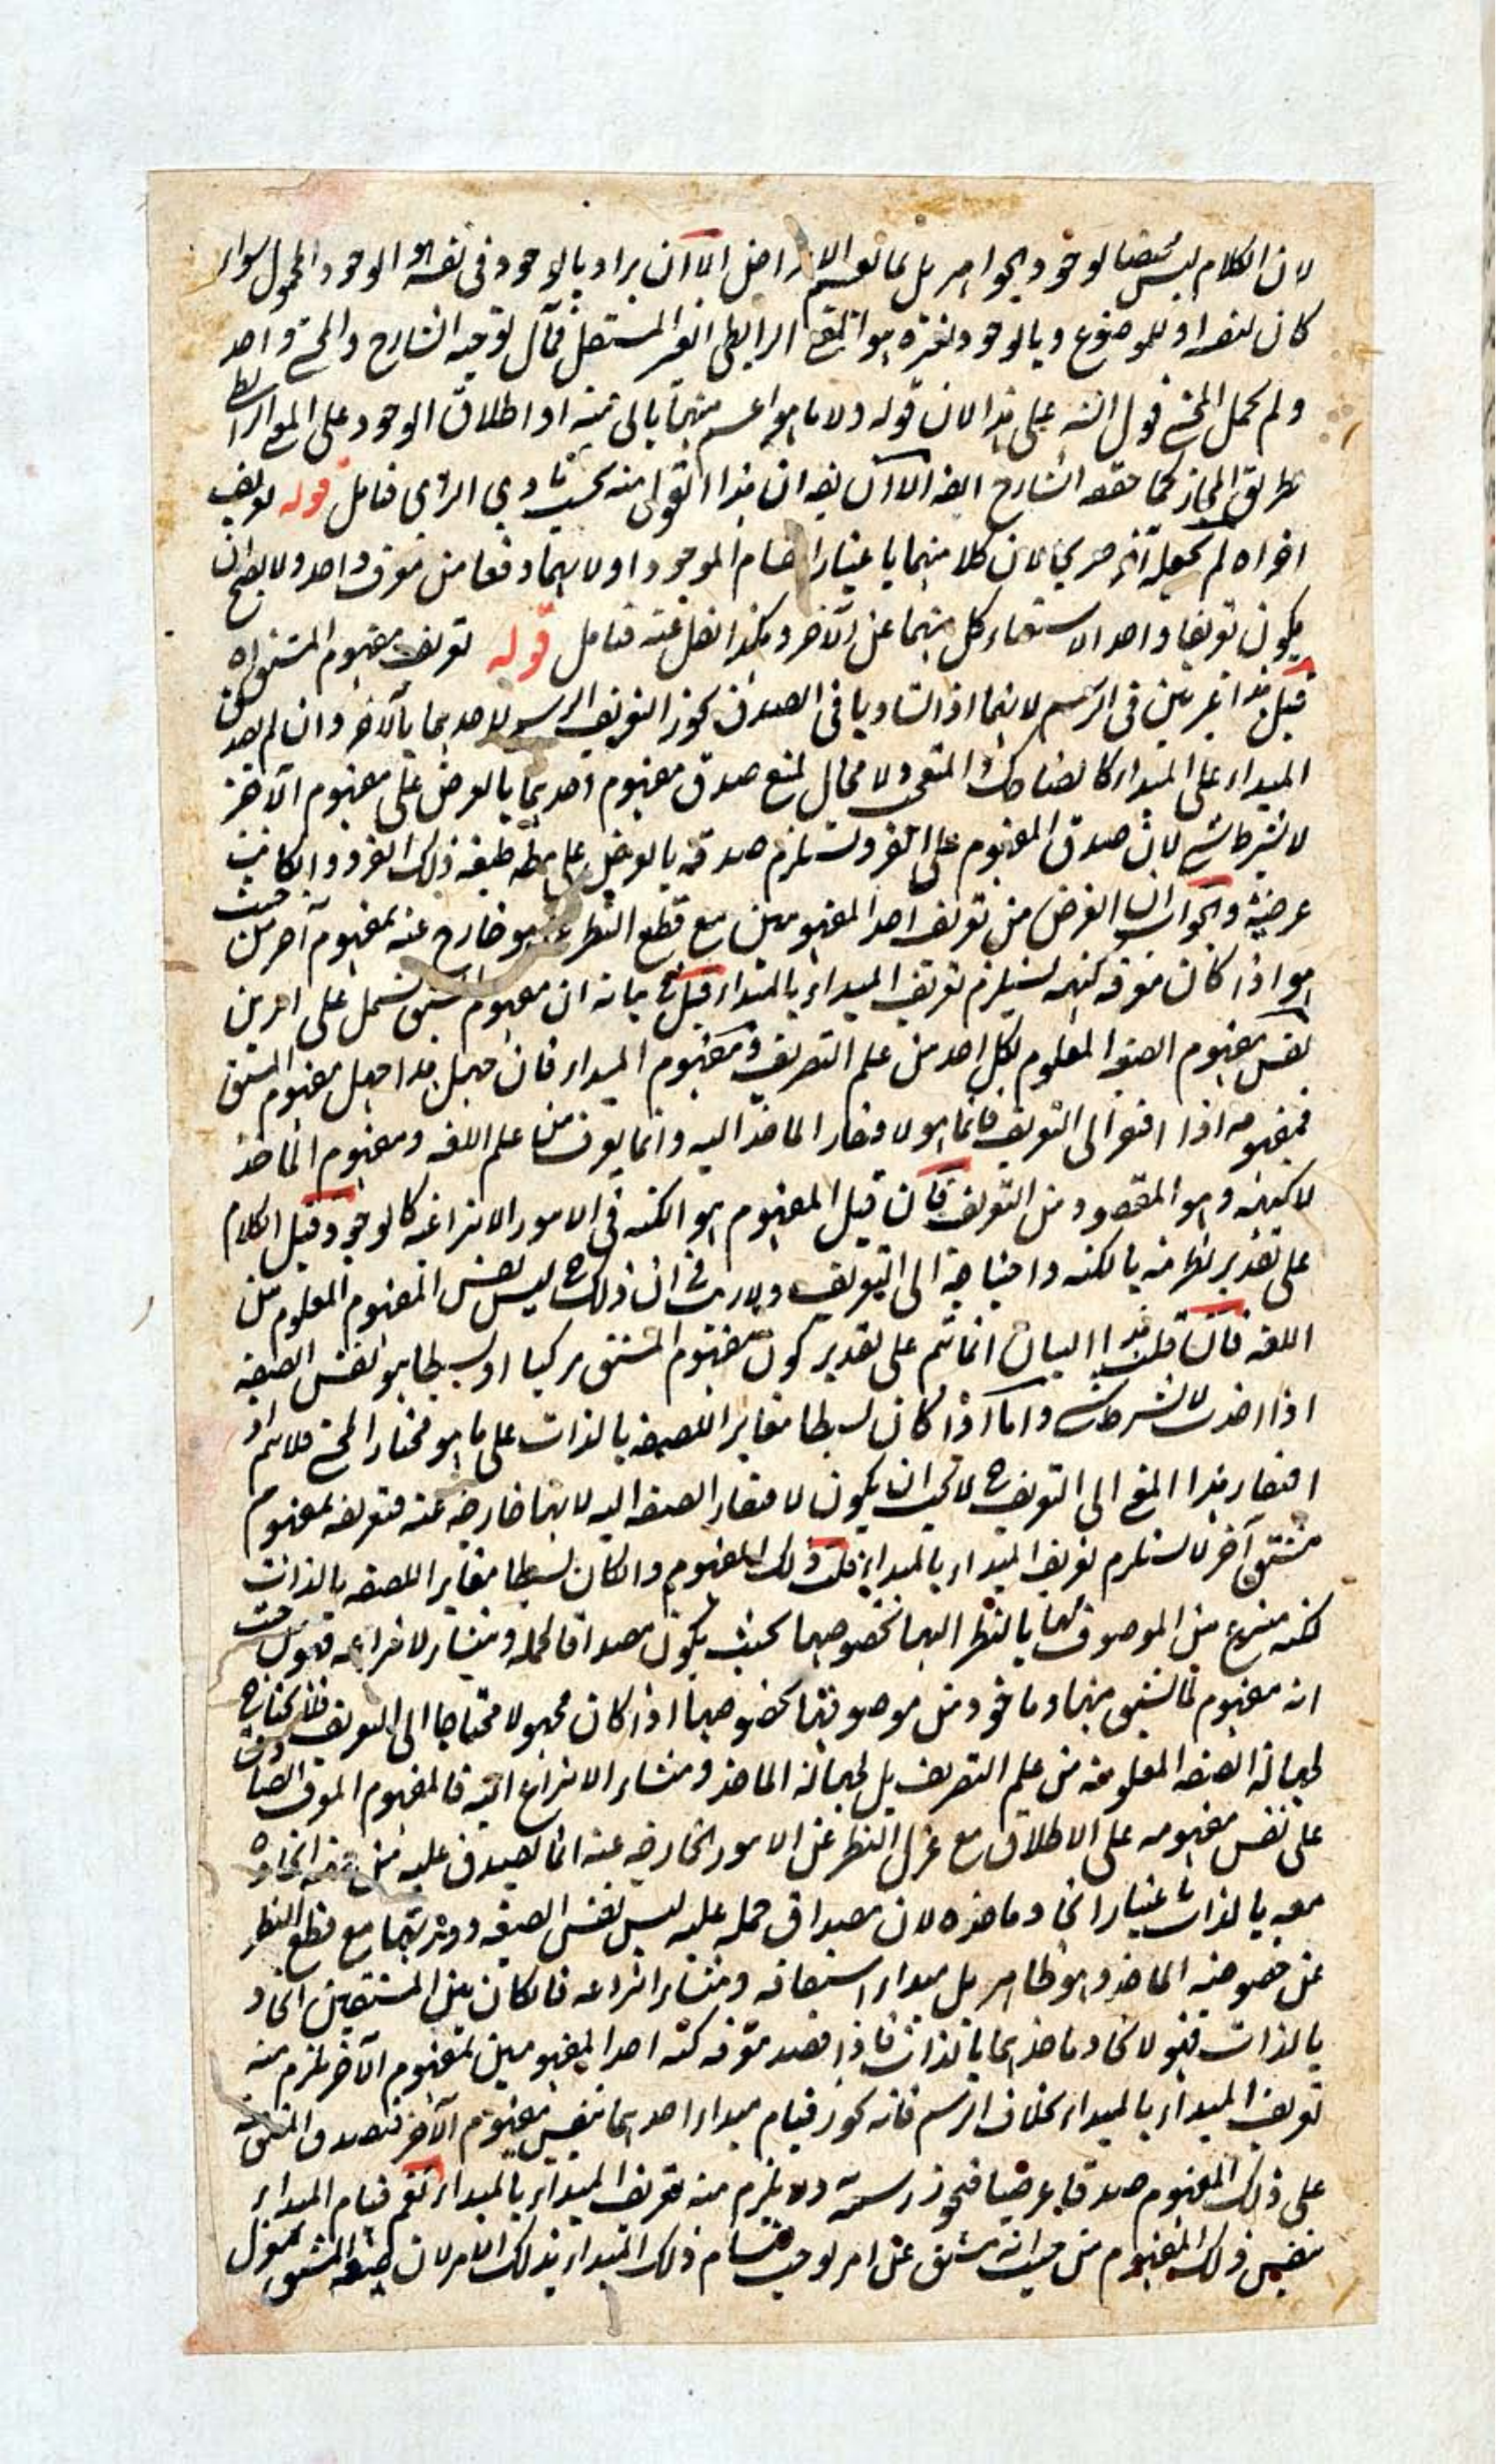 لان الكلام ليس مختصا لوجود الجواهر بل بما يعم الاعراض الا ان يراد بالوجود فى نفسه هو الوجود المحمول سواء
كان لنفسه او للموضوع وبالوجود لغيره هو المعنى الرابطى الغير المستقل فمآل توجيه الشارح والمحشى واحد
ولم يحمل المحشى قول الشه على هذا لان قوله ولا ما هو اعم منهما يابى عنه اذ اطلاق الوجود على المعنى الرابطى
بطريق المجاز كما حققه الشارح ايضا الا ان يقال ان هذا القول منه بحسب بادى الراى فتامل قوله تعريف
اخر اه لم يجعله لان كلا منهما باعتبار انقسام الموجود اولا بهما وقعا من معرف واحد ولا يصح ان
يكون تعريفا واحدا لاستغناء كل منهما عن الآخر وهكذا نقل عنه فتامل قوله تعريف مفهوم المشتق اه
قيل هذا غير بين فى الرسم لانهما اذا تساويا فى الصدق يجوز التعريف الرسمى لاحدهما بالآخر وان لم يصدق
المبداء على المبداء كالضاحك والمتعجب ولا مجال لمنع صدق مفهوم احدهما بالعرض على مفهوم الآخر
لا بشرط شىء لان صدق المفهوم على الفرد يستلزم صدقه بالعرض على طبيعة ذلك الفرد وان كانت
عرضية والجواب ان الغرض من تعريف احد المفهومين مع قطع النظر عما هو خارج عنه بمفهوم آخر من حيث
هو اذا كان معرفة كنهه يستلزم تعريف المبداء بالمبداء قيل فى بيانه ان مفهوم المشتق يشتمل على امرين
نفس مفهوم الصيغة المعلوم لكل احد من علم التصريف ومفهوم المبداء فان جهل هذا جهل مفهوم المشتق
فمفهومه اذا افتقر الى التعريف فانما هو لافتقار الماخذ اليه وانما يعرف من علم اللغة ومفهوم الماخذ
لا كنهه وهو المقصود من التعريف فان قيل المفهوم هو الكنه فى الامور الانتزاعية كالوجود قيل الكلام
على تقدير نظريته بالكنه واحتياجه الى التعريف ولا ريب فى ان ذلك ح ليس نفس المفهوم المعلوم من
اللغة فان قلت هذا البيان انما يتم على تقدير كون مفهوم المشتق مركبا او بسيطا هو نفس الصفة
اذا اخذت لا بشرط شىء واما اذا كان بسيطا مغايرا للصفة بالذات على ما هو مختار المحشى فلا يتم اذ
افتقار هذا المعنى الى التعريف ح لا يجب ان يكون لافتقار الصفة اليه لانها خارجة عنه فتعريفه بمفهوم
مشتق آخر لا يستلزم تعريف المبداء بالمبداء قلت ذلك المفهوم وان كان بسيطا مغايرا للصفة بالذات
لكنه منتزع من الموصوف بها بالنظر اليها بخصوصها بحيث يكون مصداقا لحمله ومنشاء لانتزاعه فهو من حيث
انه مفهوم لما يشتق منها وماخوذ من موصوفيتها بخصوصها اذا كان مجهولا محتاجا الى التعريف
لجهالة الصيغة المعلومة من علم التصريف بل لجهالة الماخذ ومنشاء الانتزاع اليه فالمفهوم المعرف الصادق
على نفس مفهومه على الاطلاق مع عزل النظر عن الامور الخارجية عنه انما يصدق عليه من جهة اتحاده
معه بالذات باعتبار اتحاد ماخذه لان مصداق حمله عليه ليس نفس الصيغة وهيئتها مع قطع النظر
عن خصوصية الماخذ وهو ظاهر بل مبداء اشتقاقه ومنشاء انتزاعه فان كان بين المشتقين اتحاد
بالذات فهو لاتحاد ماخذهما بالذات فاذا قصد معرفة كنه احد المفهومين بمفهوم الآخر يلزم منه
تعريف المبداء بالمبداء بخلاف الرسم فانه يجوز قيام مبداء احدهما بنفس مفهوم الآخر فيصدق المشتق منه
على ذلك المفهوم صدقا عرضيا فيجوز رسمه ولا يلزم منه تعريف المبداء بالمبداء نعم قيام المبداء
بنفس ذلك المفهوم من حيث انه مشتق عن امر يوجب قيام ذلك المبداء بذلك الامر لان صيغة المشتق بمعزل